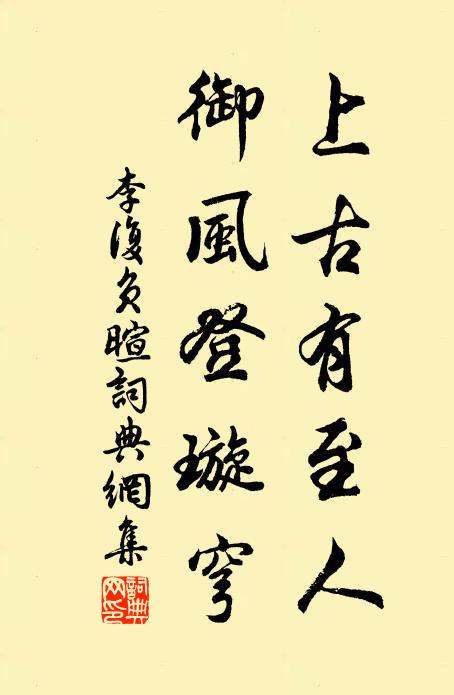 上古有至人
御風登璇穹
李復負暄詞典網集
詞典网印